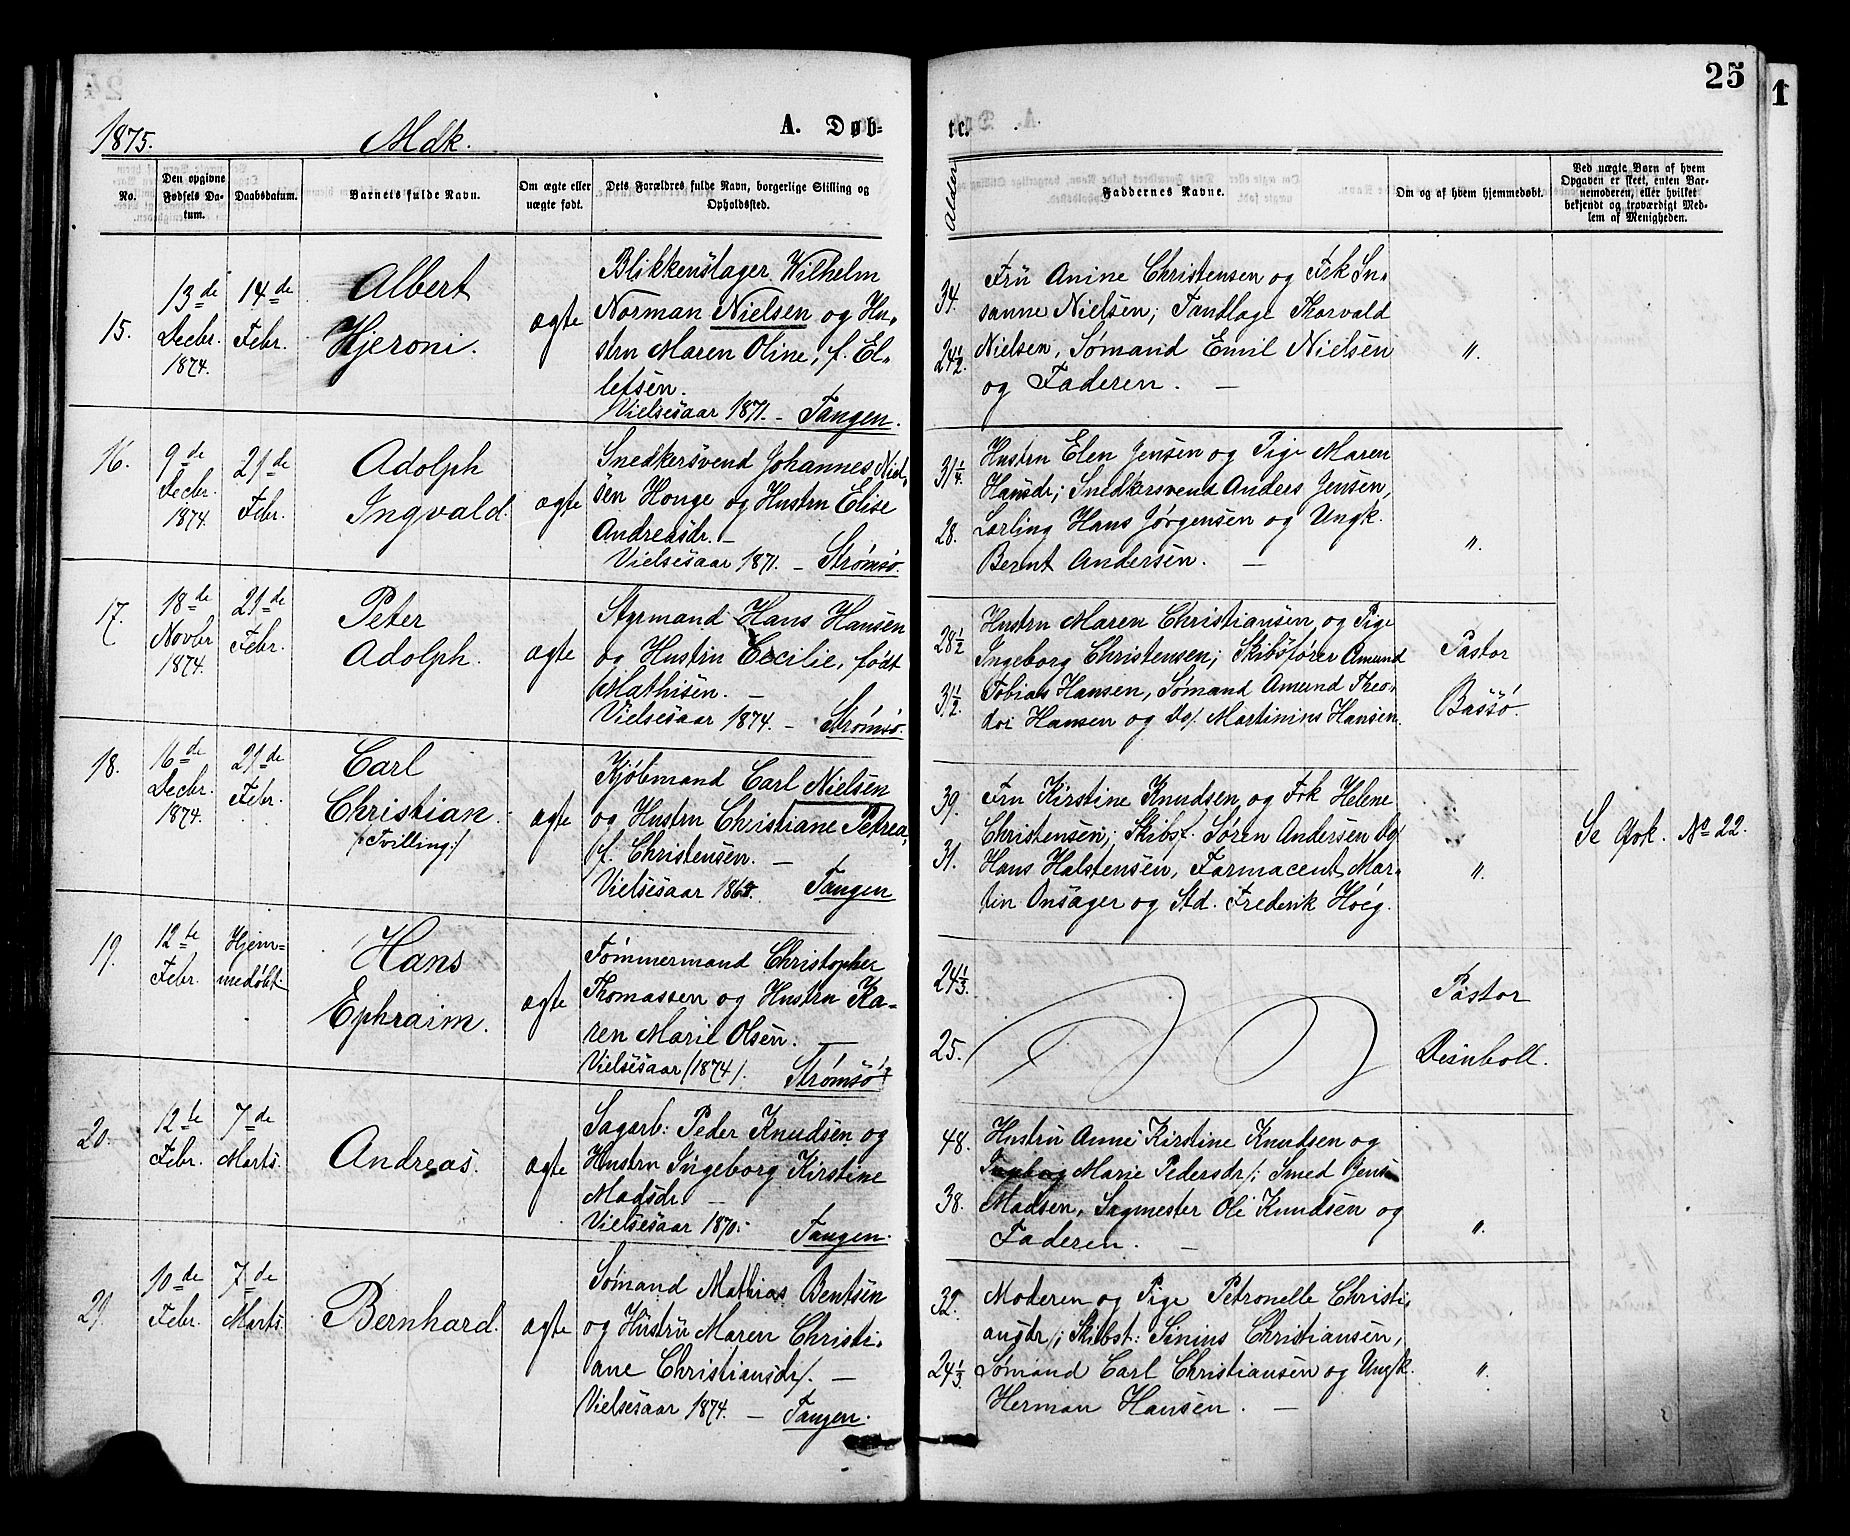 25
1
1875.
Mdk.
A. Døb-
te.
No.
Den opgivne
Fødsels Da-
tum.
Daabsdatum.
Barnets fulde Navn.
Om ægte eller
uægte født.
Dets Forældres fulde Navn, borgerlige Stilling og
Opholdssted.
Alder
Faddernes Navne.
Om og af hvem hjemmedøbt.
Ved uægte Børn af hvem
Opgaven er skeet, enten Bar-
nemoderen, eller hvilket
bekjendt og troværdigt Med-
lem af Menigheden.
15.
13de
Decbr.
1874.
14de
Febr.
Albert
Hjeroni.
ægte
Blikkenslager Wilhelm
Norman Nielsen og Hu-
stru Maren Oline, f. El-
lefsen.
Vielsesaar 1871. – Tangen.
34.
24½
Fru Anine Christensen og Frk Su-
sanne Nielsen; Tandlæge Thorvald
Nielsen, Sømand Emil Nielsen
og Faderen. –
"
16.
9de
Decbr.
1874.
21de
Febr.
Adolph
Ingvald.
ægte
Snedkersvend Johannes Niel-
sen Houge og Hustru Elise
Andreasdr. –
Vielsesaar 1871. – Strømsø.
31¼
28.
Hustru Elen Jensen og Pige Maren
Hansdr; Snedkersvend Anders Jensen,
Lærling Hans Jørgensen og Ungk.
Bernt Andersen. –
"
17.
18de
Novbr
1874.
21de
Febr.
Peter
Adolph.
ægte
Styrmand Hans Hansen
og Hustru Cecilie, født
Mathisen. –
Vielsesaar 1874. – Strømsø.
28½
31½
Hustru Maren Christiansen, og Pige
Ingeborg Christensen; Skibsfører Amund
Tobias Hansen, Sømand Amund Theo-
dor Hansen og Do/. Martinius Hansen.
Pastor
Bassø.
18.
16de
Decbr.
1874.
21de
Febr.
Carl
Christian.
/:Tvilling:/
ægte
Kjøbmand Carl Nielsen
og Hustru Christiane Petrea,
f. Christensen. –
Tangen
39.
31.
Fru Kirstine Knudsen og Frk Helene
Christensen; Skibsf. Søren Andersen Do/
Hans Halstensen, Farmaceut Mar-
tin Onsager og Std. Frederik Høeg.
"
Se Qvk. No 22.
19.
12te
Febr.
Hjem-
medøbt.
Hans
Ephraim.
ægte
Tømmermand Christopher
Thomassen og Hustru Ka-
ren Marie Olsen. –
Vielsesaar (1874). Strømsø.
24⅓
25.
Pastor
Deinboll.
20.
12te
Febr.
7de
Marts.
Andreas.
ægte
Sagarb: Peder Knudsen og
Hustru Ingeborg Kirstine
Madsdr. –
Vielsesaar 1870. Tangen.
48.
38.
Hustru Anne Kirstine Knudsen og
Marie Pedersdr/; Smed
Madsen, Sagmester Ole Knudsen og
Faderen. –
"
21.
10de
Febr.
7de
Marts.
Bernhard.
ægte
Sømand Mathias Bentsen
og Hustru Maren Christi-
ane Christiansdr/. –
Vielsesaar 1874. – Tangen.
32.
24⅓
Moderen og Pige Petronelle Christi-
ansdr/; Skibst: Sinius Christiansen,
Sømand Carl Christiansen og Ungk.
Herman Hansen. –
"